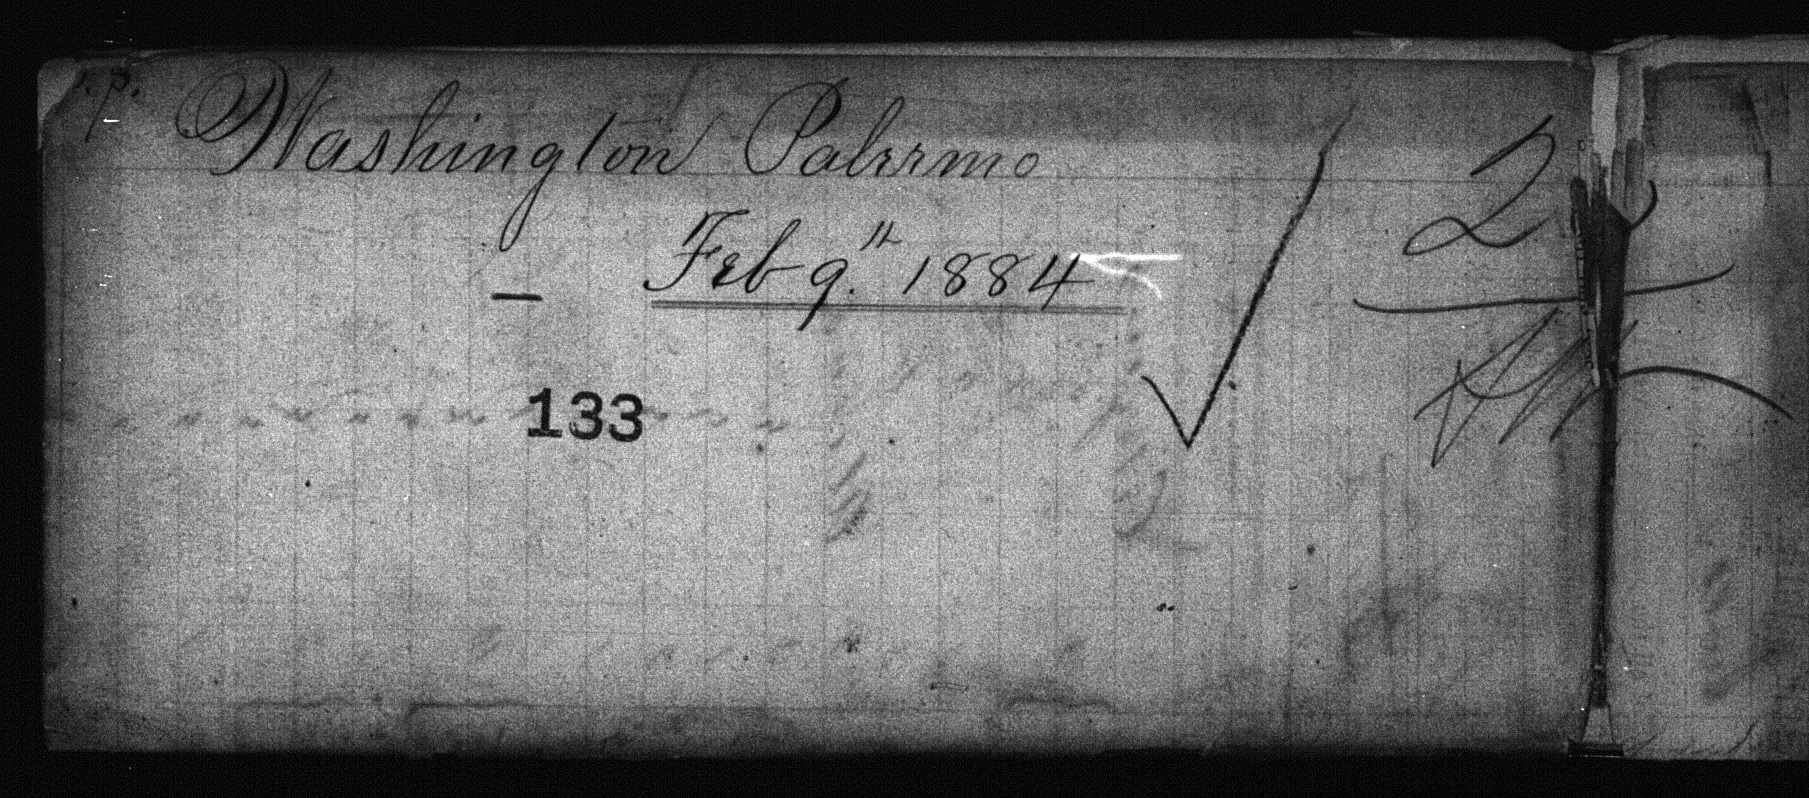 Washington Palermo 2
Feb 9." 1884
133